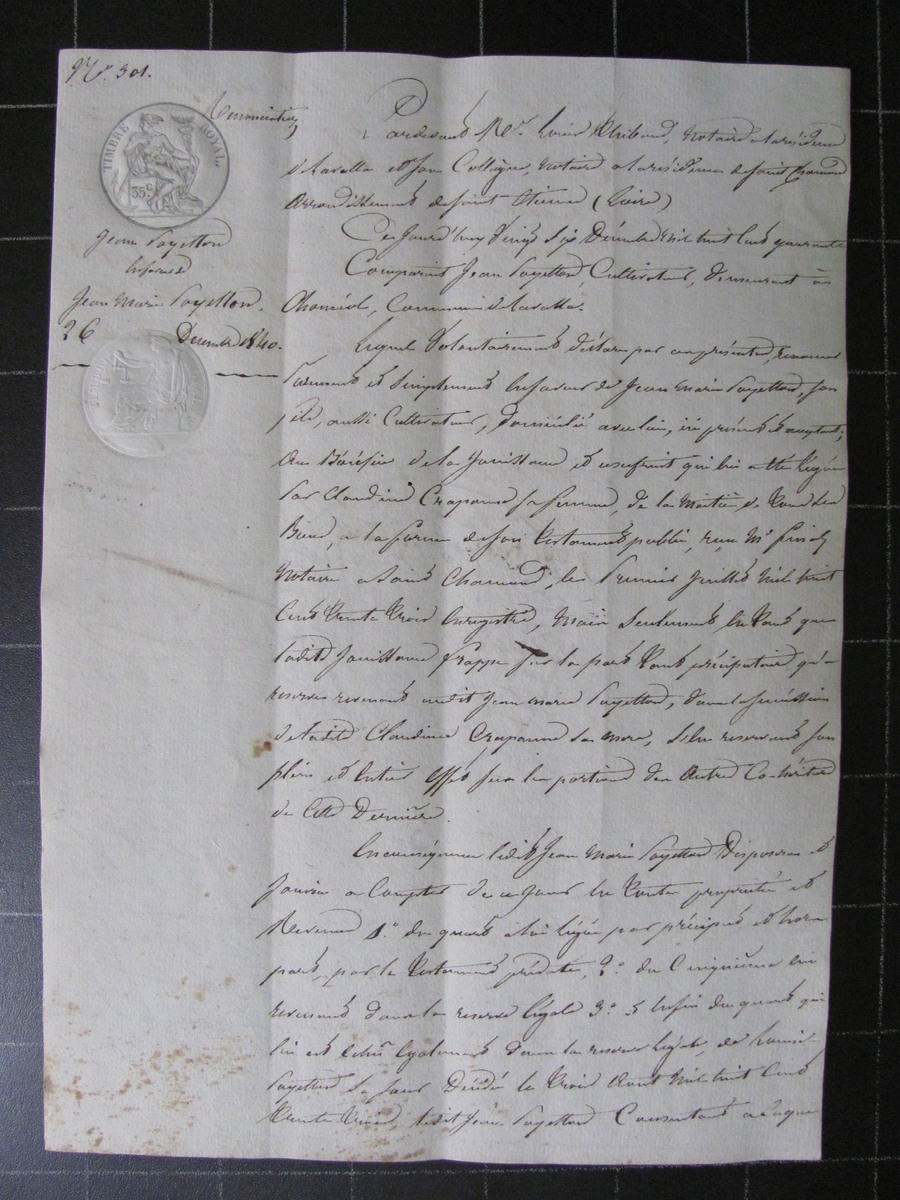 N.º 301.
TIMBRE ROYAL
35 c
Renonciation
Jean Payetton
Jean Marie Payetton.
26 Decembre 1840.
Pardevant Me. Louis Thibaud, Notaire a la résidence
de Lavalla et son Collègue, Notaire a la résidence de saint Chamond
Arrondissement de saint Etienne (Loire)
Ce jourd'huy Vingt Six Décembre mil huit Cent quarante
Comparait Jean Payetton, Cultivateur, demeurant à
Commune de Lavalla.
Lequel Volontairement déclare par ces présentes, renoncer
Purement et Simplement en faveur de Jean Marie Payetton, son
fils, aussi Cultivateur, domicilié avec lui, ici présent et acceptant;
Au Bénéfice de la Jouissance et usufruit qui lui a été légué
Par Claudine Crapanne sa femme, de la Moitié de Tous ses
Biens, a la forme de son Testament public, reçu Me
Notaire a Saint Chamond, le Premier Juillet mil huit
Cent Trente Trois Enregistré, Mais Seulement en Tant que
ladite Jouissance frappe sur la part Tant préciputaire qu'a
reserve revenant audit Jean Marie Payetton, dans la succession
de ladite Claudine Crapanne sa mère, Elle reservant son
plein et Entier Effet sur les portions des Autres Co-héritiers
de Cette Dernière.
En conséquence ledit Jean Marie Payetton Disposera et
Jouira a Compter de ce Jour en Toute propriété et
Revenus 1.º du quart a lui légué par préciput et hors
part, par le Testament prédaté, 2.º du Cinquième lui
revenant dans la reserve légale 3.º Et Enfin du quart qui
lui est Echu Egalement dans la reserve légale, de Louise
Payetton Sa sœur Décédée le Trois Aout Mil huit Cent
Trente Trois, ledit Jean Payetton Consentant a ce que